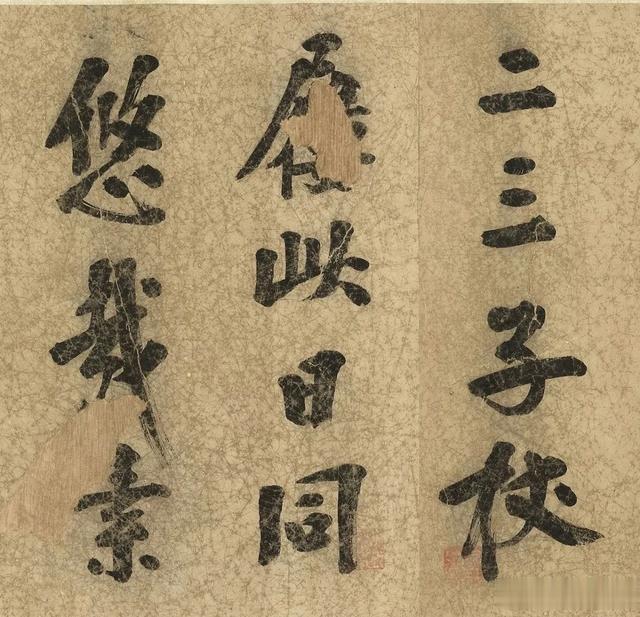 二三子杖
此日同
悠哉素